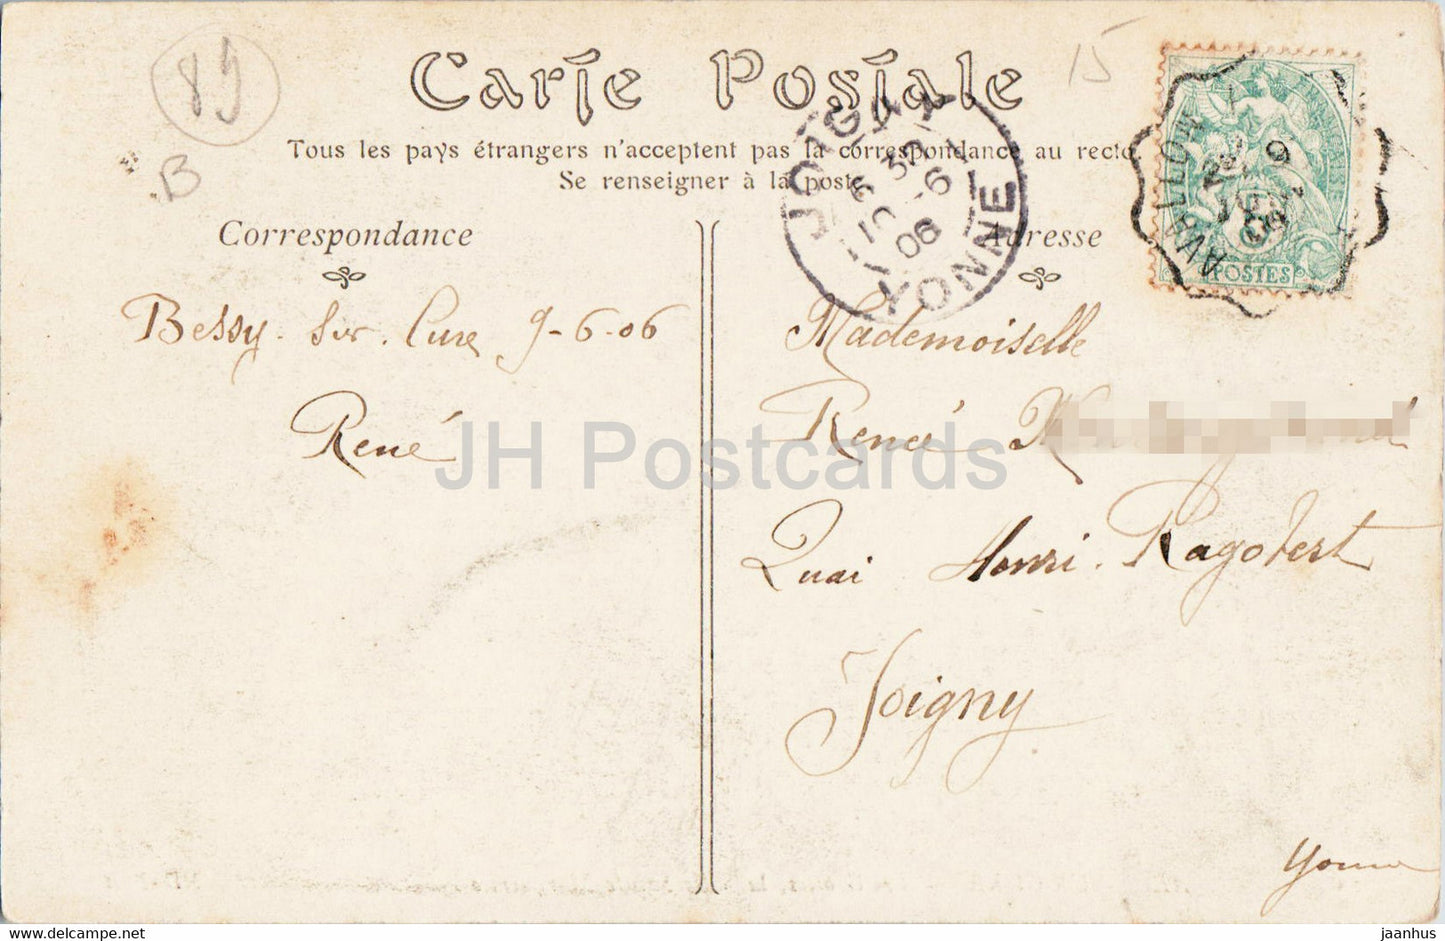 89
B
15
Carte Postale
Tous les pays étrangers n'acceptent pas la correspondance au recto.
Se renseigner à la poste
Correspondance
Adresse
JOIGNY
YONNE
10 -6
06
AVALLON
POSTES
Bessy. sur. Cure 9-6-06
René
Mademoiselle
Renée
Quai Henri. Ragobert
Joigny
Yonne
JH Postcards
jaanhus